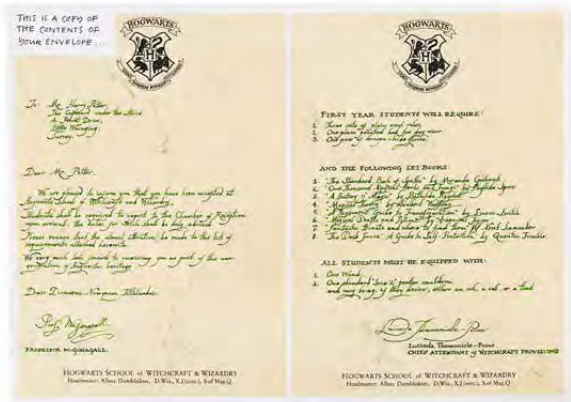 THIS IS A COPY OF
THE CONTENTS OF
YOUR ENVELOPE...
HOGWARTS
To: Mr. Harry Potter,
The Cupboard under the Stairs
4, Privet Drive,
Little Whinging,
Surrey.
Dear Mr. Potter,
We are pleased to inform you that you have been accepted at
Hogwarts School of Witchcraft and Wizardry.
Students shall be required to report to the Chamber of Reception
upon arrival, the dates for which shall be duly advised.
Please ensure that the utmost attention be made to the list of
requirements attached herewith.
We very much look forward to receiving you as part of the new
generation of Hogwarts heritage.
Prof. McGonagall
PROFESSOR McGONAGALL
HOGWARTS SCHOOL of WITCHCRAFT & WIZARDRY
Headmaster: Albus Dumbledore, D.Wiz., X.J.(sorc.), S.of Mag.Q.
HOGWARTS
FIRST YEAR STUDENTS WILL REQUIRE:
1. Three sets of plain work robes
2. One plain pointed hat for day wear
3. One pair of dragon-hide gloves
AND THE FOLLOWING SET BOOKS:
1. "The Standard Book of Spells" by Miranda Goshawk
2. "One Thousand Magical Herbs and Fungi" by Phyllida Spore
3. "A History of Magic" by Bathilda Bagshot
4. "Magical Theory" by Adalbert Waffling
5. "A Beginners' Guide to Transfiguration" by Emeric Switch
6. "Magical Drafts and Potions" by Arsenius Jigger
7. "Fantastic Beasts and where to find them" by Newt Scamander
8. "The Dark Forces: A Guide to Self-Protection" by Quentin Trimble
ALL STUDENTS MUST BE EQUIPPED WITH:
1. One Wand
2. One standard size 2 pewter cauldron
and may bring, if they desire, either an owl, a cat, or a toad
Lucinda Thomsonicle-Pocus
CHIEF ATTENDANT of WITCHCRAFT PROVISIONS
HOGWARTS SCHOOL of WITCHCRAFT & WIZARDRY
Headmaster: Albus Dumbledore, D.Wiz., X.J.(sorc.), S.of Mag.Q.